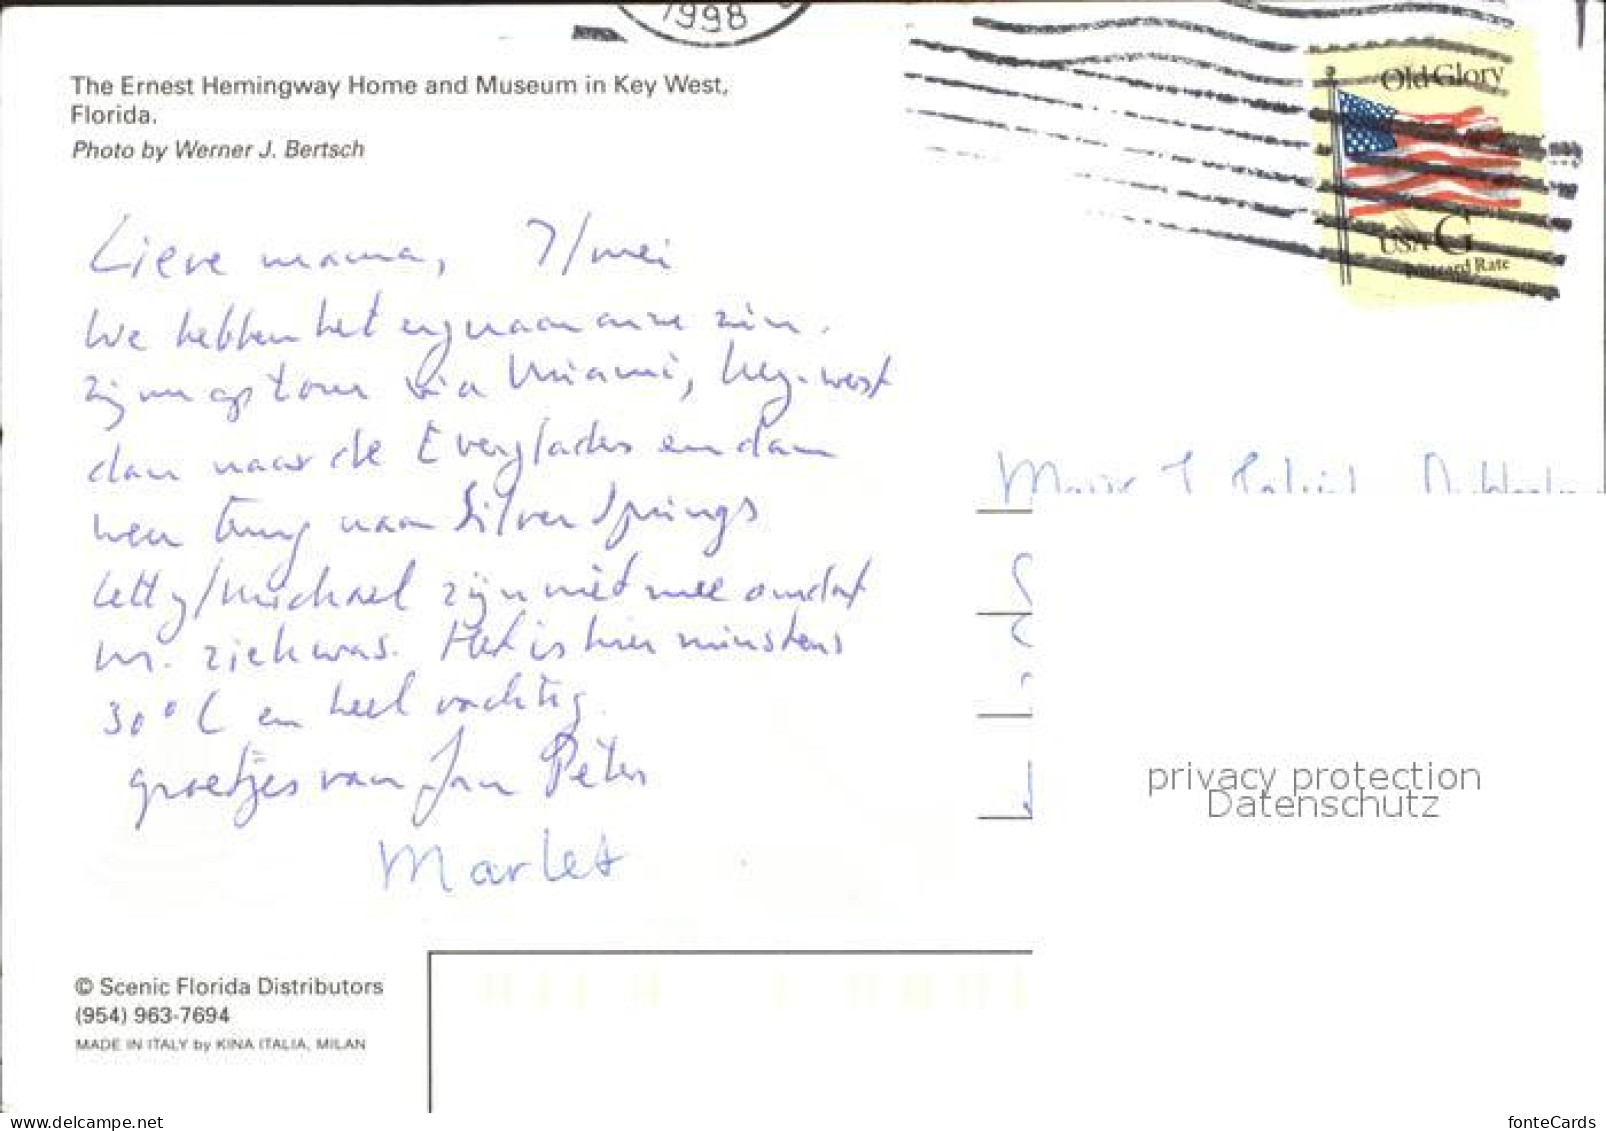 1998
The Ernest Hemingway Home and Museum in Key West,
Florida.
Photo by Werner J. Bertsch
Old Glory
USA G
Postcard Rate
Lieve mama, 7/mei
We hebben het erg naar onze zin.
Zijn nu op tour via Miami, Key-west
dan naar de Everglades en dan
weer terug naar Silver Springs
Letty/Michael zijn niet mee omdat
M. ziek was. Het is hier minstens
30° C en heel vochtig.
groetjes van Jan Peter
Marlet
privacy protection
Datenschutz
© Scenic Florida Distributors
(954) 963-7694
MADE IN ITALY by KINA ITALIA, MILAN
www.delcampe.net
fonteCards